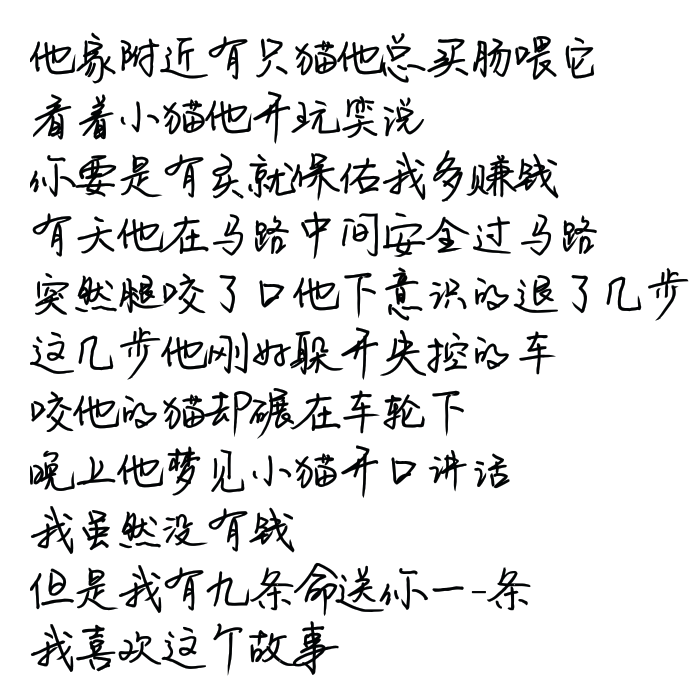 他家附近有只猫他总买肠喂它
看着小猫他开玩笑说
你要是有灵就保佑我多赚钱
有天他在马路中间安全过马路
突然腿咬了口他下意识的退了几步
这几步他刚好躲开失控的车
咬他的猫却碾在车轮下
晚上他梦见小猫开口讲话
我虽然没有钱
但是我有九条命送你一一条
我喜欢这个故事